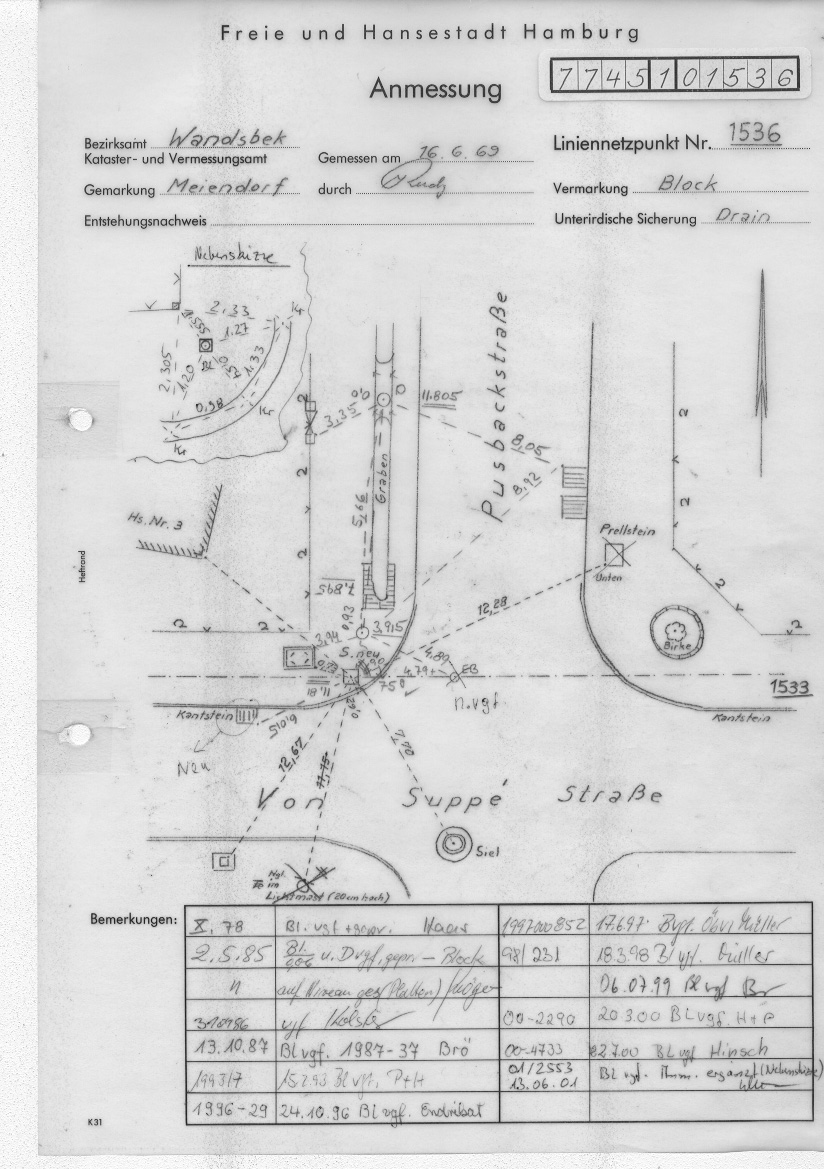 Freie und Hansestadt Hamburg
Anmessung
77451 01536
Bezirksamt Wandsbek
Kataster- und Vermessungsamt
Gemessen am 16.6.69
Liniennetzpunkt Nr. 1536
Gemarkung Meiendorf
durch
Vermarkung Block
Entstehungsnachweis
Unterirdische Sicherung Drain
Nebenskizze
2,33
Kr
1.535
1.27
Bl
0.57
1.33
2,305
1.20
0,98
Kr
Kr
Pusbackstraße
3,35
0,0
11.805
8,05
8,92
Graben
5,66
Hs. Nr. 3
Prellstein
Unten
7,895
12,28
0,93
3,94
3,915
S. neu
Birke
4.89
4.79
EB
750
11.81
1533
n.vgf.
Kantstein
Kantstein
6,015
Neu
12,67
7,70
Von Suppé Straße
Siel
Lichtmast (20cm hoch)
Heftrand
Bemerkungen:
X. 78 Bl. vgf. + gepr. Haas
1997000852 17.6.97
2.5.85 u. Dvgf. gepr. – Block
98/231 18.3.98 Bl vgf.
" auf Niveau
06.07.99 Bl vgf
vgf
00-2290 20.3.00 BL vgf. H+P
13.10.87 Bl vgf. 1987-37 Brö
00-4733 Bl vgf Hinsch
1993/7 15.2.93 Bl vgf. P+H
01/2553
13.06.01
Bl vgf. ergänzt (Nebenskizze)
1996-29 24.10.96 Bl vgf. Endrikat
K31